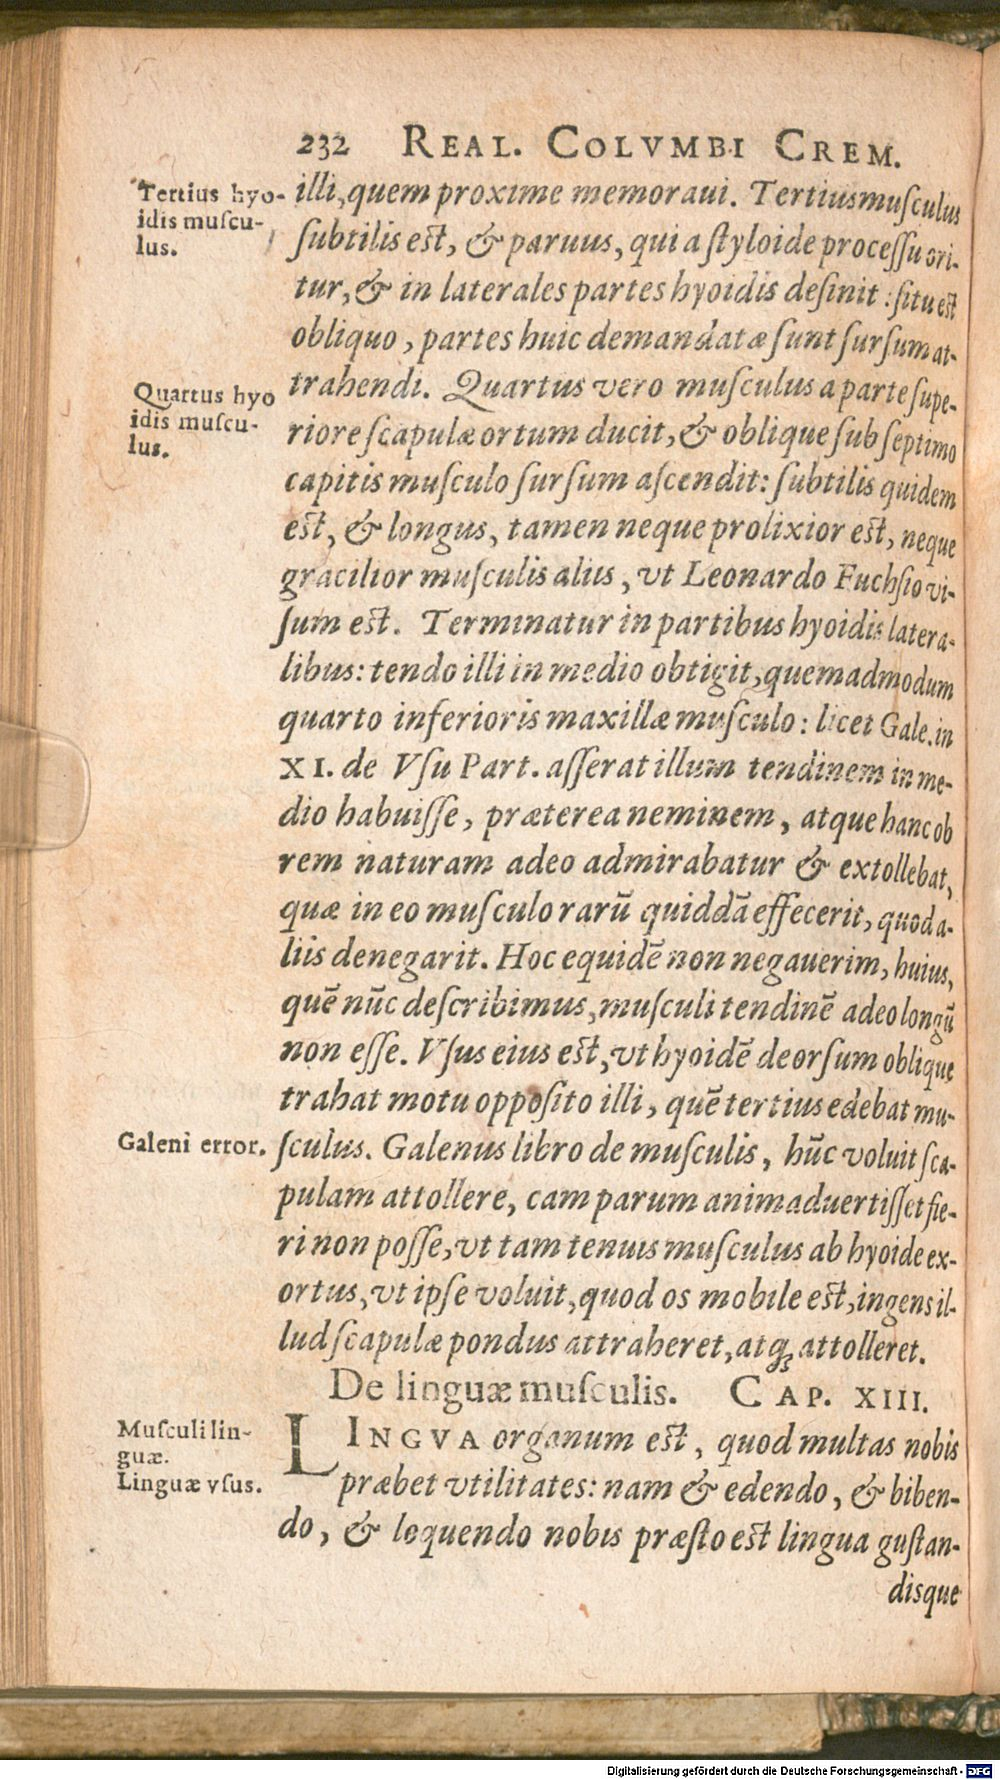 232 REAL. COLVMBI CREM.
Tertius hyo-
idis muſcu-
lus.
illi, quem proxime memoraui. Tertius muſculus
ſubtilis est, & paruus, qui a ſtyloide proceſſu ori-
tur, & in laterales partes hyoidis deſinit: ſitu est
obliquo, partes huic demandatæ ſunt ſurſum at-
Quartus hyo
idis muſcu-
lus.
trahendi. Quartus vero muſculus a parte ſupe-
riore ſcapulæ ortum ducit, & oblique ſub ſeptimo
capitis muſculo ſurſum aſcendit: ſubtilis quidem
est, & longus, tamen neque prolixior est, neque
gracilior muſculis aliis, vt Leonardo Fuchſio vi-
ſum est. Terminatur in partibus hyoidis latera-
libus: tendo illi in medio obtigit, quemadmodum
quarto inferioris maxillæ muſculo: licet Gale. in
XI. de Vſu Part. aſſerat illum tendinem in me-
dio habuiſſe, præterea neminem, atque hanc ob
rem naturam adeo admirabatur & extollebat,
quæ in eo muſculo rarū quiddā effecerit, quod a-
liis denegarit. Hoc equidē non negauerim, huius,
quē nūc deſcribimus, muſculi tendinē adeo longū
non eſſe. Vſus eius est, vt hyoidē deorſum oblique
trahat motu oppoſito illi, quē tertius edebat mu-
Galeni error.
ſculus. Galenus libro de muſculis, hūc voluit ſca-
pulam attollere, cam parum animaduertiſſet fie-
ri non poſſe, vt tam tenuis muſculus ab hyoide ex-
ortus, vt ipſe voluit, quod os mobile est, ingens il-
lud ſcapulæ pondus attraheret, atq́; attolleret.
De linguæ muſculis. CAP. XIII.
Muſculi lin-
guæ.
Linguæ vſus.
LINGVA organum est, quod multas nobis
præbet vtilitates: nam & edendo, & biben-
do, & loquendo nobis præſto est lingua guſtan-
disque
Digitalisierung gefördert durch die Deutsche Forschungsgemeinschaft - DFG